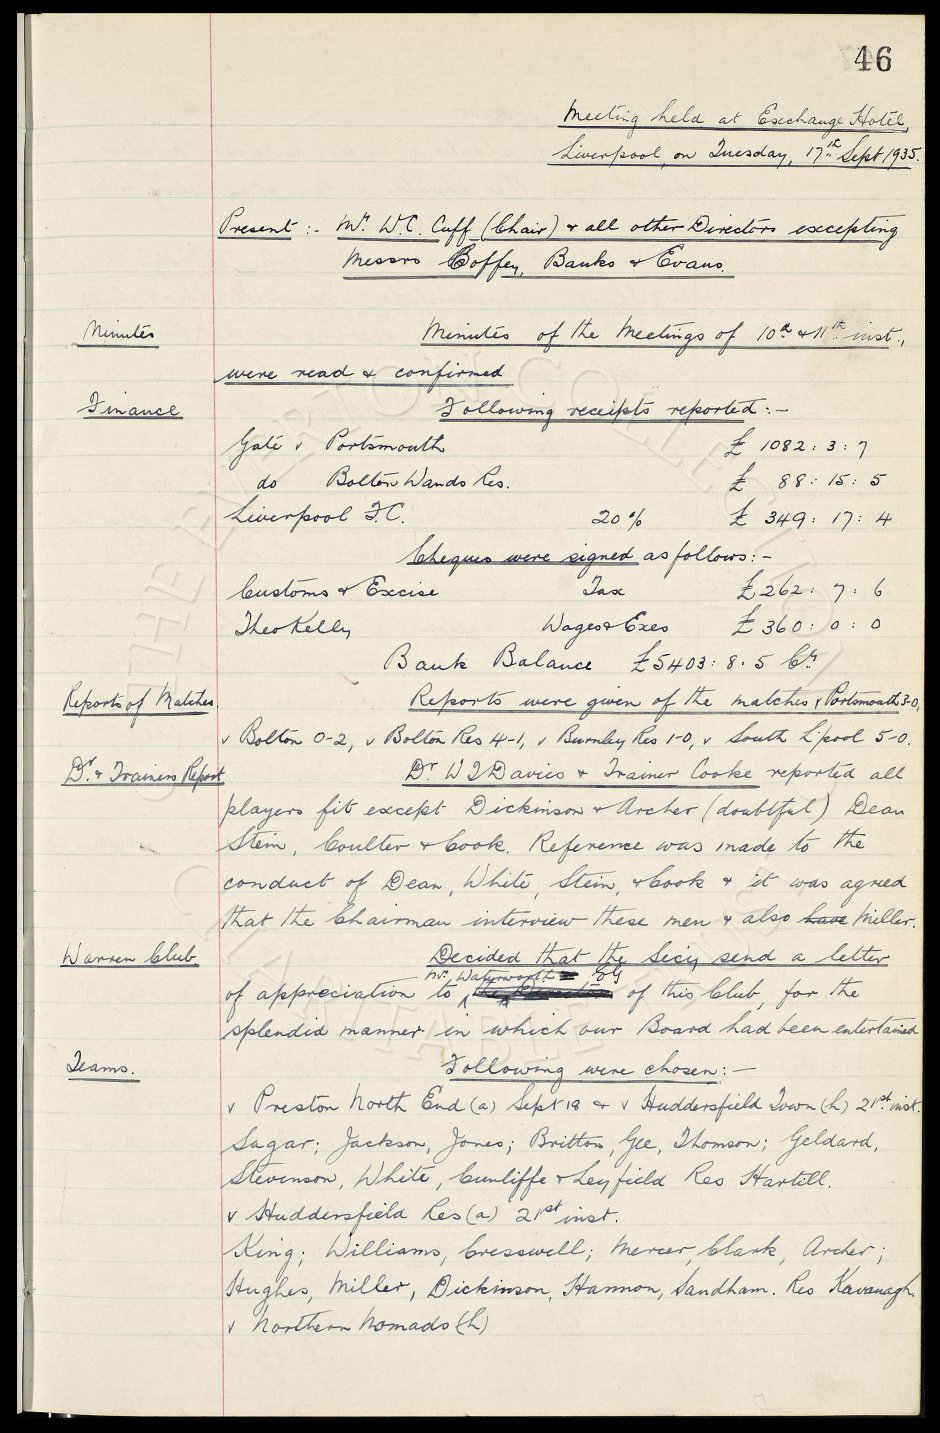 46
Meeting held at Exchange Hotel,
Liverpool, on Tuesday, 17th Sept 1935.
Present :- Mr W.C. Cuff (Chair) & all other Directors excepting
Messrs Coffey, Banks & Evans.
Minutes Minutes of the Meetings of 10th & 11th inst.,
were read & confirmed
Finance Following receipts reported :-
Gate v Portsmouth £ 1082 : 3 : 7
do Bolton Wands Res. £ 88 : 15 : 5
Liverpool F.C. 20% £ 349 : 17 : 4
Cheques were signed as follows :-
Customs & Excise Tax £262 : 7 : 6
Theo Kelly Wages & Exes £ 360 : 0 : 0
Bank Balance £5403 : 8 . 5 Cr
Reports of Matches. Reports were given of the matches v Portsmouth 3-0,
v Bolton 0-2, v Bolton Res 4-1, v Burnley Res 1-0, v South L'pool 5-0.
Dr. & Trainers Report Dr. W J Davies & Trainer Cooke reported all
players fit except Dickinson & Archer (doubtful) Dean
Stein, Coulter & Cook. Reference was made to the
conduct of Dean, White, Stein, & Cook & it was agreed
that the Chairman interview these men & also have Miller.
Warren Club. Decided that the Secy send a letter
Mr. Waterworth
of appreciation to the Directors of this Club, for the
splendid manner in which our Board had been entertained
Teams. Following were chosen :-
v Preston North End (a) Sept 18 & v Huddersfield Town (h) 21st inst.
Sagar; Jackson, Jones; Britton, Gee, Thomson; Geldard,
Stevenson, White, Cunliffe & Leyfield Res Hartill.
v Huddersfield Res (a) 21st inst.
King; Williams, Cresswell; Mercer, Clark, Archer;
Hughes, Miller, Dickinson, Hannon, Sandham. Res Kavanagh.
v Northern Nomads (h)
THE EVERTON COLLECTION